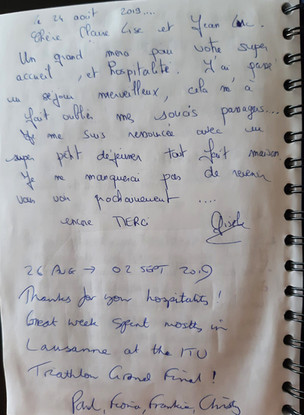 le 24 août 2019....
Chère Marie Lise et Jean Luc.
Un grand merci pour votre super
accueil, et hospitalité. J'ai passé
un séjour merveilleux, cela m'a
fait oublié mes soucis passagers...
Je me suis ressourcée avec un
super petit déjeuner tout fait maison
Je ne manquerai pas de revenir
vous voir prochainement ....
encore MERCI
26 AUG → 02 SEPT 2019
Thanks for your hospitality!
Great week spent mostly in
Lausanne at the ITU
Triathlon Grand Final!
Paul, Fiona, Frankie, Christy